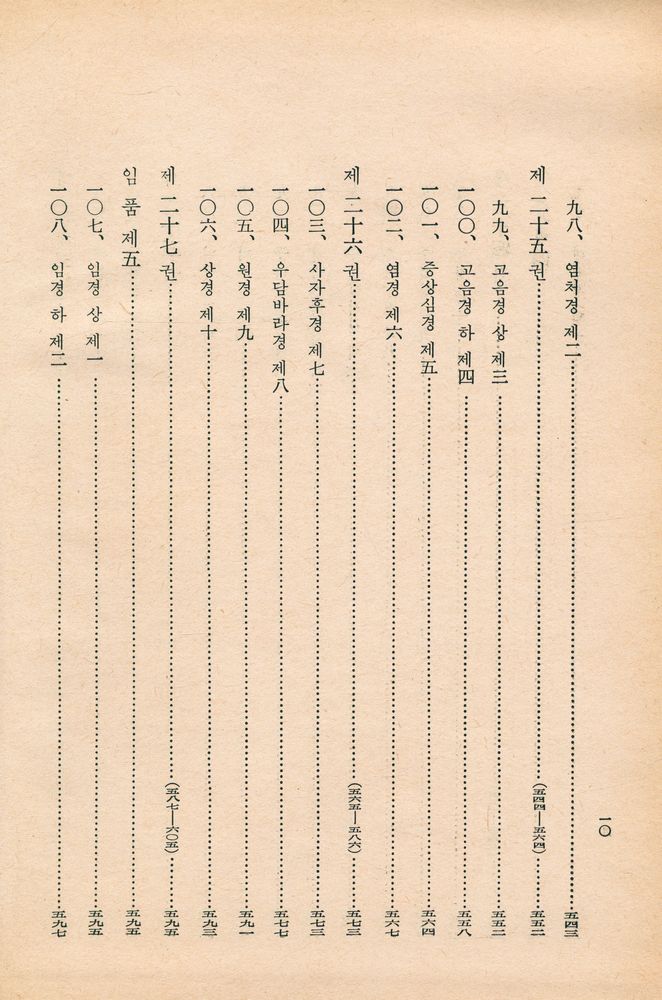 一〇
九八、염처경 제二……五四三
제 二十五 권……(五四四―五六四)……五五二
九九、고음경 상 제三……五五二
一〇〇、고음경 하 제四……五五八
一〇一、증상심경 제五……五六四
一〇二、염경 제六……五六七
제 二十六 권……(五六五―五八六)……五七三
一〇三、사자후경 제七……五七三
一〇四、우담바라경 제八……五七七
一〇五、원경 제九……五九一
一〇六、상경 제十……五九三
제 二十七 권……(五八七―六〇五)……五九五
임 품 제五……五九五
一〇七、임경 상 제一……五九五
一〇八、임경 하 제二……五九七